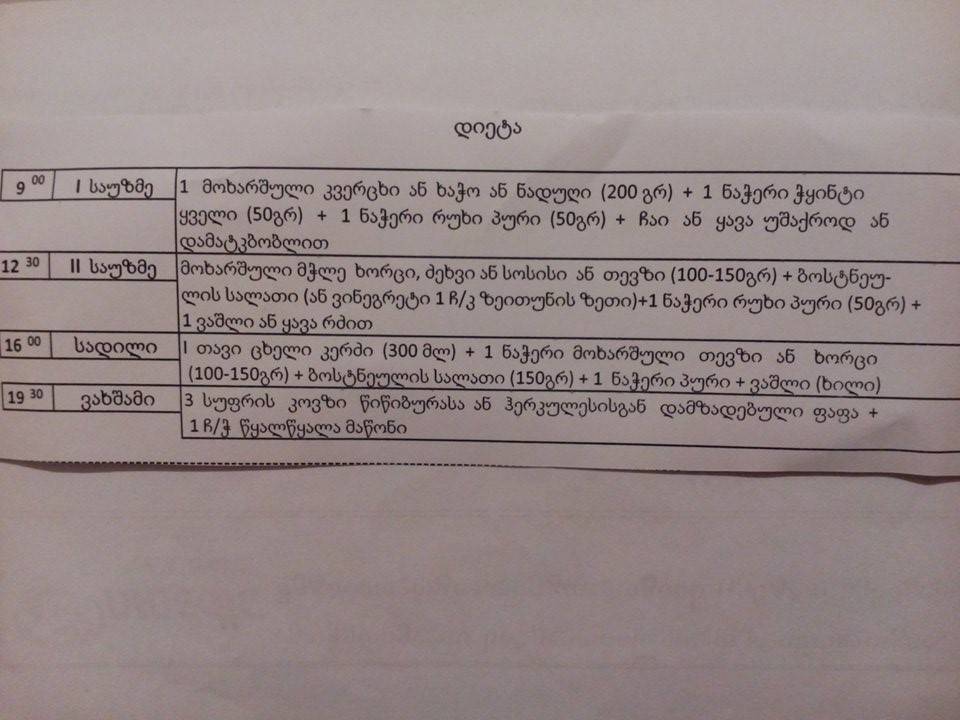 დიეტა
9 00 I საუზმე 1 მოხარშული კვერცხი ან ხაჭო ან ნადუღი (200 გრ) + 1 ნაჭერი ჭყინტი
ყველი (50გრ) + 1 ნაჭერი რუხი პური (50გრ) + ჩაი ან ყავა უშაქროდ ან
დამატკბობლით
12 30 II საუზმე მოხარშული მჭლე ხორცი, ძეხვი ან სოსისი ან თევზი (100-150გრ) + ბოსტნეუ-
ლის სალათი (ან ვინეგრეტი 1 ჩ/კ ზეითუნის ზეთი)+1 ნაჭერი რუხი პური (50გრ) +
1 ვაშლი ან ყავა რძით
16 00 სადილი I თავი ცხელი კერძი (300 მლ) + 1 ნაჭერი მოხარშული თევზი ან ხორცი
(100-150გრ) + ბოსტნეულის სალათი (150გრ) + 1 ნაჭერი პური + ვაშლი (ხილი)
19 30 ვახშამი 3 სუფრის კოვზი წიწიბურასა ან ჰერკულესისგან დამზადებული ფაფა +
1 ჩ/ჭ წყალწყალა მაწონი